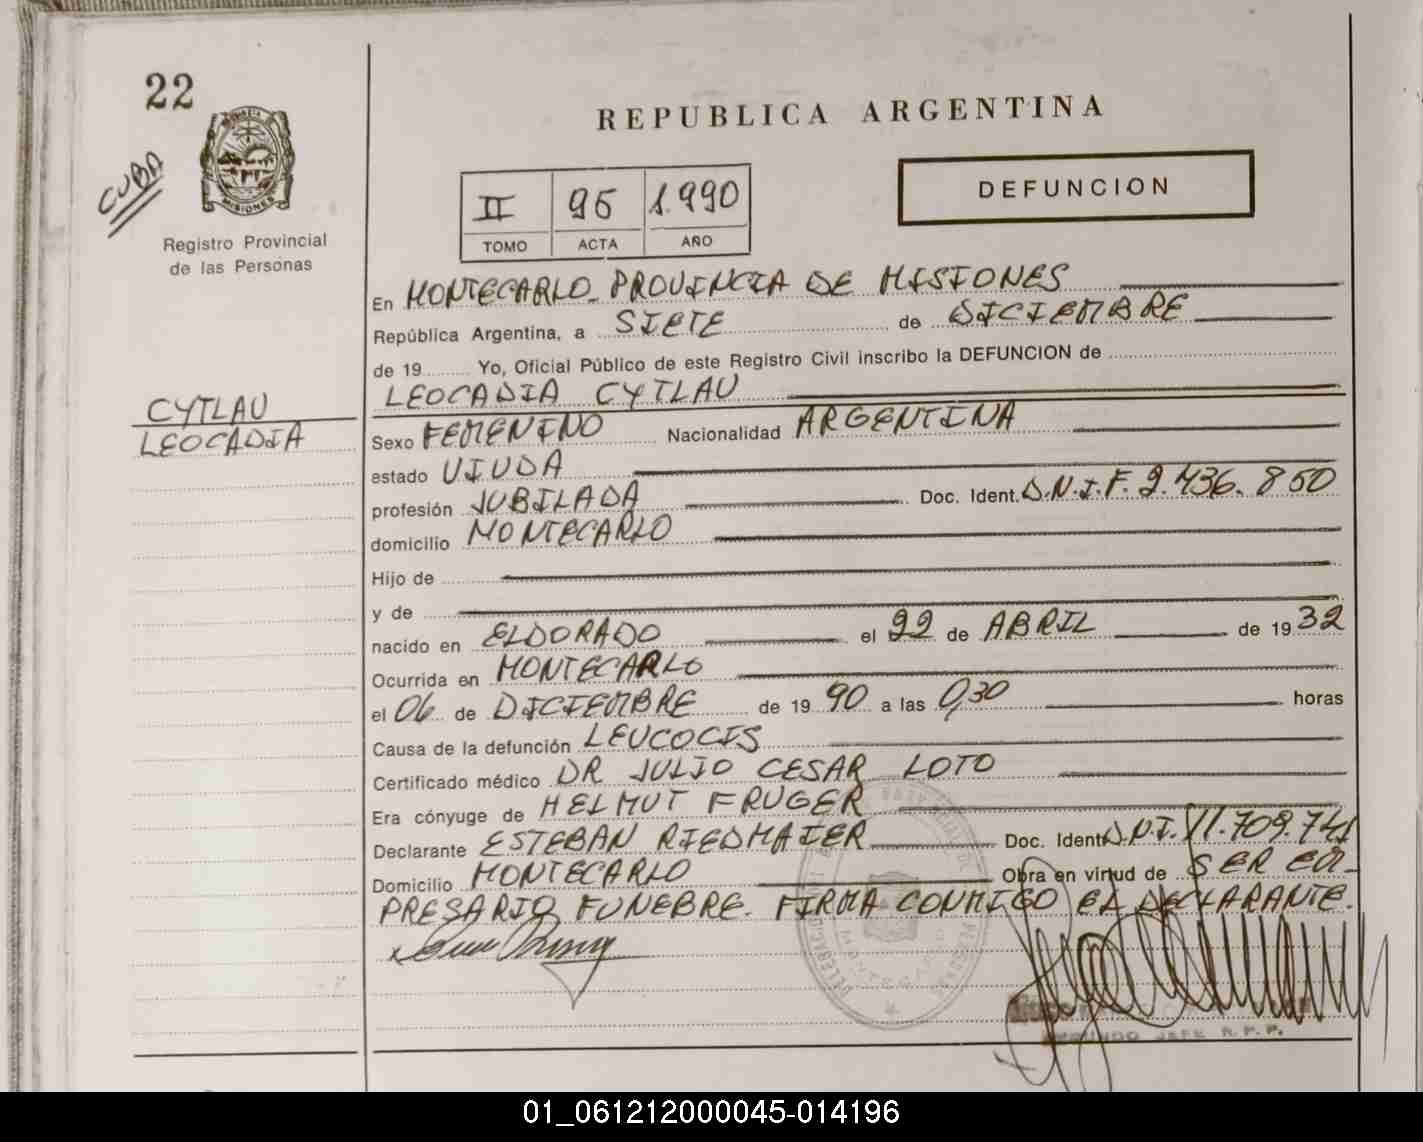 22
CUBA
MISIONES
Registro Provincial
de las Personas
CYTLAU
LEOCADIA
REPUBLICA ARGENTINA
II 95 1.990
TOMO ACTA AÑO
DEFUNCION
En MONTECARLO PROVINCIA DE MISIONES
República Argentina, a SIETE de DICIEMBRE
de 19 Yo, Oficial Público de este Registro Civil inscribo la DEFUNCION de
LEOCADIA CYTLAU
Sexo FEMENINO Nacionalidad ARGENTINA
estado VIUDA
profesión JUBILADA Doc. Ident. D.N.I.F. 2.436.850
domicilio MONTECARLO
Hijo de
y de
nacido en ELDORADO el 22 de ABRIL de 1932
Ocurrida en MONTECARLO
el 06 de DICIEMBRE de 1990 a las 0,30 horas
Causa de la defunción LEUCOCIS
Certificado médico DR JULIO CESAR LOTO
Era cónyuge de HELMUT FRUGER
Declarante ESTEBAN RIEDMAIER Doc. Ident. D.N.I. 11.709.741
Domicilio MONTECARLO Obra en virtud de SER EM-
PRESARIO FUNEBRE. FIRMA CONMIGO EL DECLARANTE.
SEGUNDO JEFE R.P.P.
01_061212000045-014196